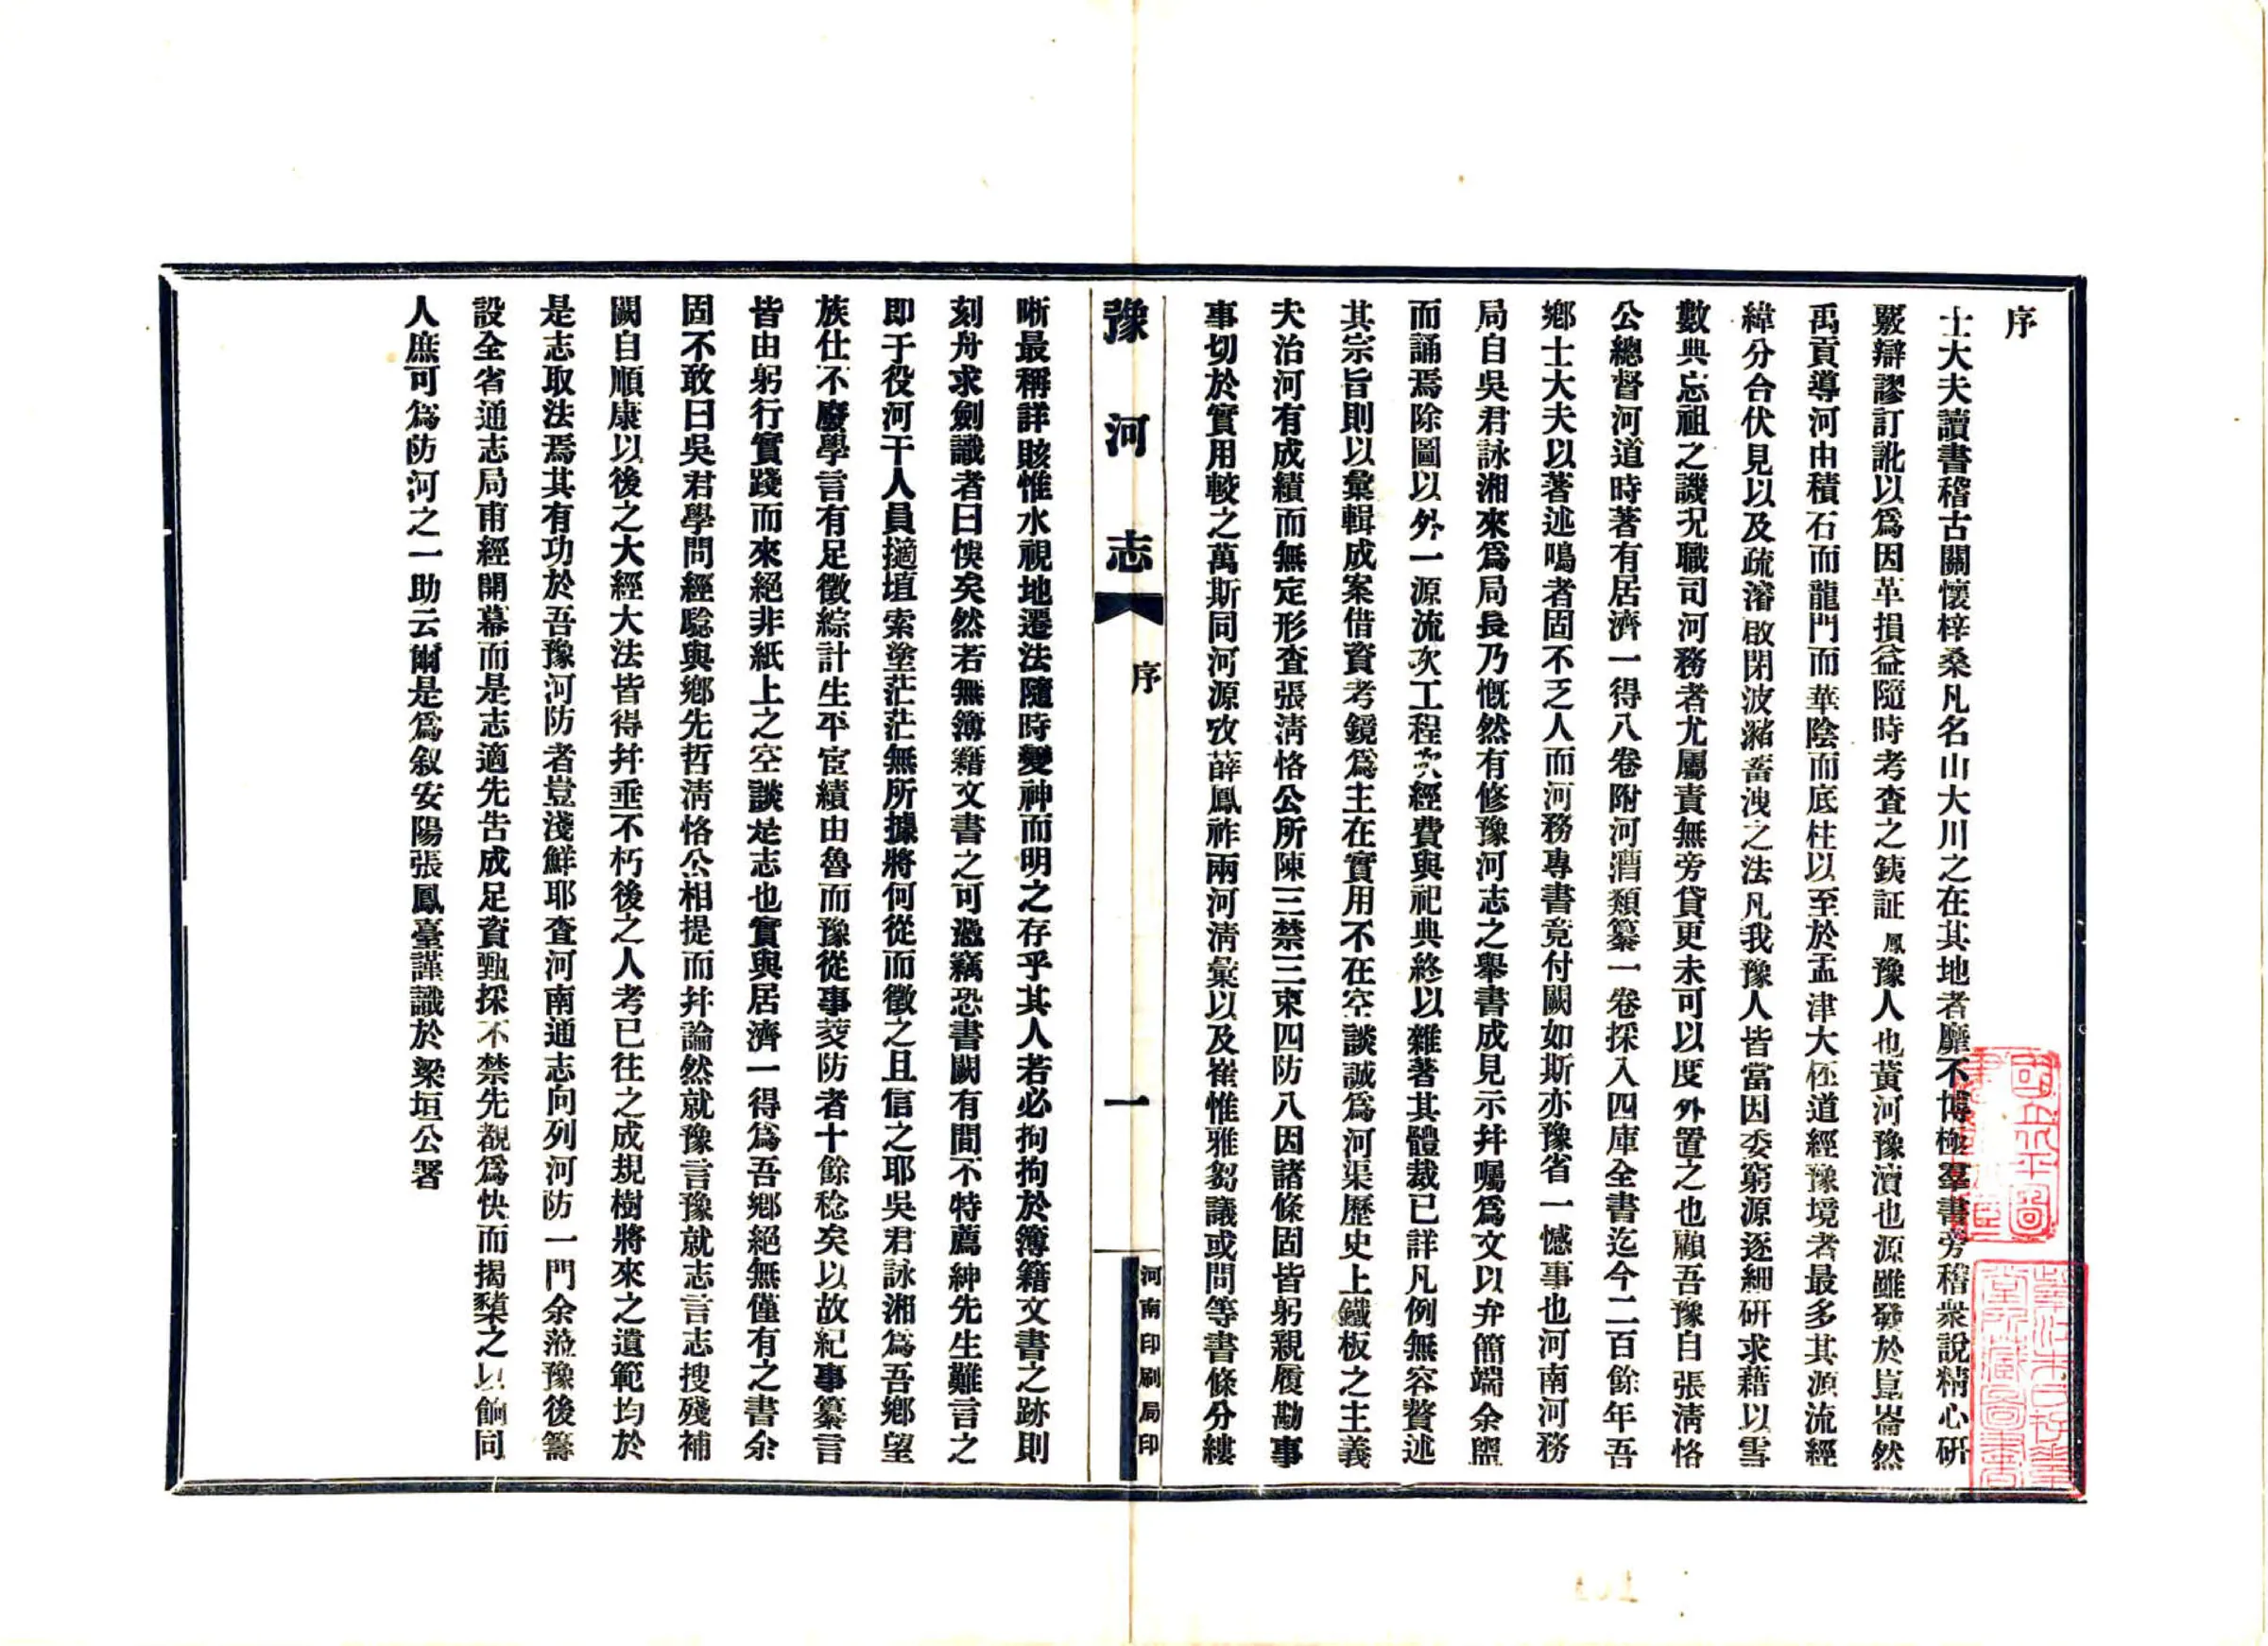 序
士大夫讀書稽古關懷梓桑凡名山大川之在其地者靡不博極羣書旁稽衆說精心研
覈辯謬訂訛以爲因革損益隨時考査之銕証鳳豫人也黃河豫瀆也源雖發於崑崙然
禹貢導河由積石而龍門而華陰而底柱以至於孟津大伾道經豫境者最多其源流經
緯分合伏見以及疏濬啟閉波瀦蓄洩之法凡我豫人皆當因委窮源逐細研求藉以雪
數典忘祖之譏況職司河務者尤屬責無旁貸更未可以度外置之也顧吾豫自張淸恪
公總督河道時著有居濟一得八卷附河漕類纂一卷採入四庫全書迄今二百餘年吾
鄉士大夫以著述鳴者固不乏人而河務專書竟付闕如斯亦豫省一憾事也河南河務
局自吳君詠湘來爲局長乃慨然有修豫河志之舉書成見示幷囑爲文以弁簡端余盥
而誦焉除圖以外一源流次工程次經費與祀典終以雜著其體裁已詳凡例無容贅述
其宗旨則以彙輯成案借資考鏡爲主在實用不在空談誠爲河渠歷史上鐵板之主義
夫治河有成績而無定形査張淸恪公所陳三禁三束四防八因諸條固皆躬親履勘事
事切於實用較之萬斯同河源攷薛鳳祚兩河淸彙以及崔惟雅芻議或問等書條分縷
豫河志 序 一 河南印刷局印
晰最稱詳賅惟水視地遷法隨時變神而明之存乎其人若必拘拘於簿籍文書之跡則
刻舟求劍識者曰悞矣然若無簿籍文書之可憑竊恐書闕有間不特薦紳先生難言之
即于役河干人員擿埴索塗茫茫無所據將何從而徵之且信之耶吳君詠湘爲吾鄉望
族仕不廢學言有足徵綜計生平宦績由魯而豫從事茭防者十餘稔矣以故紀事纂言
皆由躬行實踐而來絕非紙上之空談是志也實與居濟一得爲吾鄉絕無僅有之書余
固不敢曰吳君學問經騐與鄉先哲淸恪公相提而幷論然就豫言豫就志言志搜殘補
闕自順康以後之大經大法皆得幷垂不朽後之人考已往之成規樹將來之遺範均於
是志取法焉其有功於吾豫河防者豈淺鮮耶査河南通志向列河防一門余蒞豫後籌
設全省通志局甫經開幕而是志適先吿成足資甄採不禁先覩爲快而揭櫫之以餉同
人庶可爲防河之一助云爾是爲叙安陽張鳳臺謹識於梁垣公署